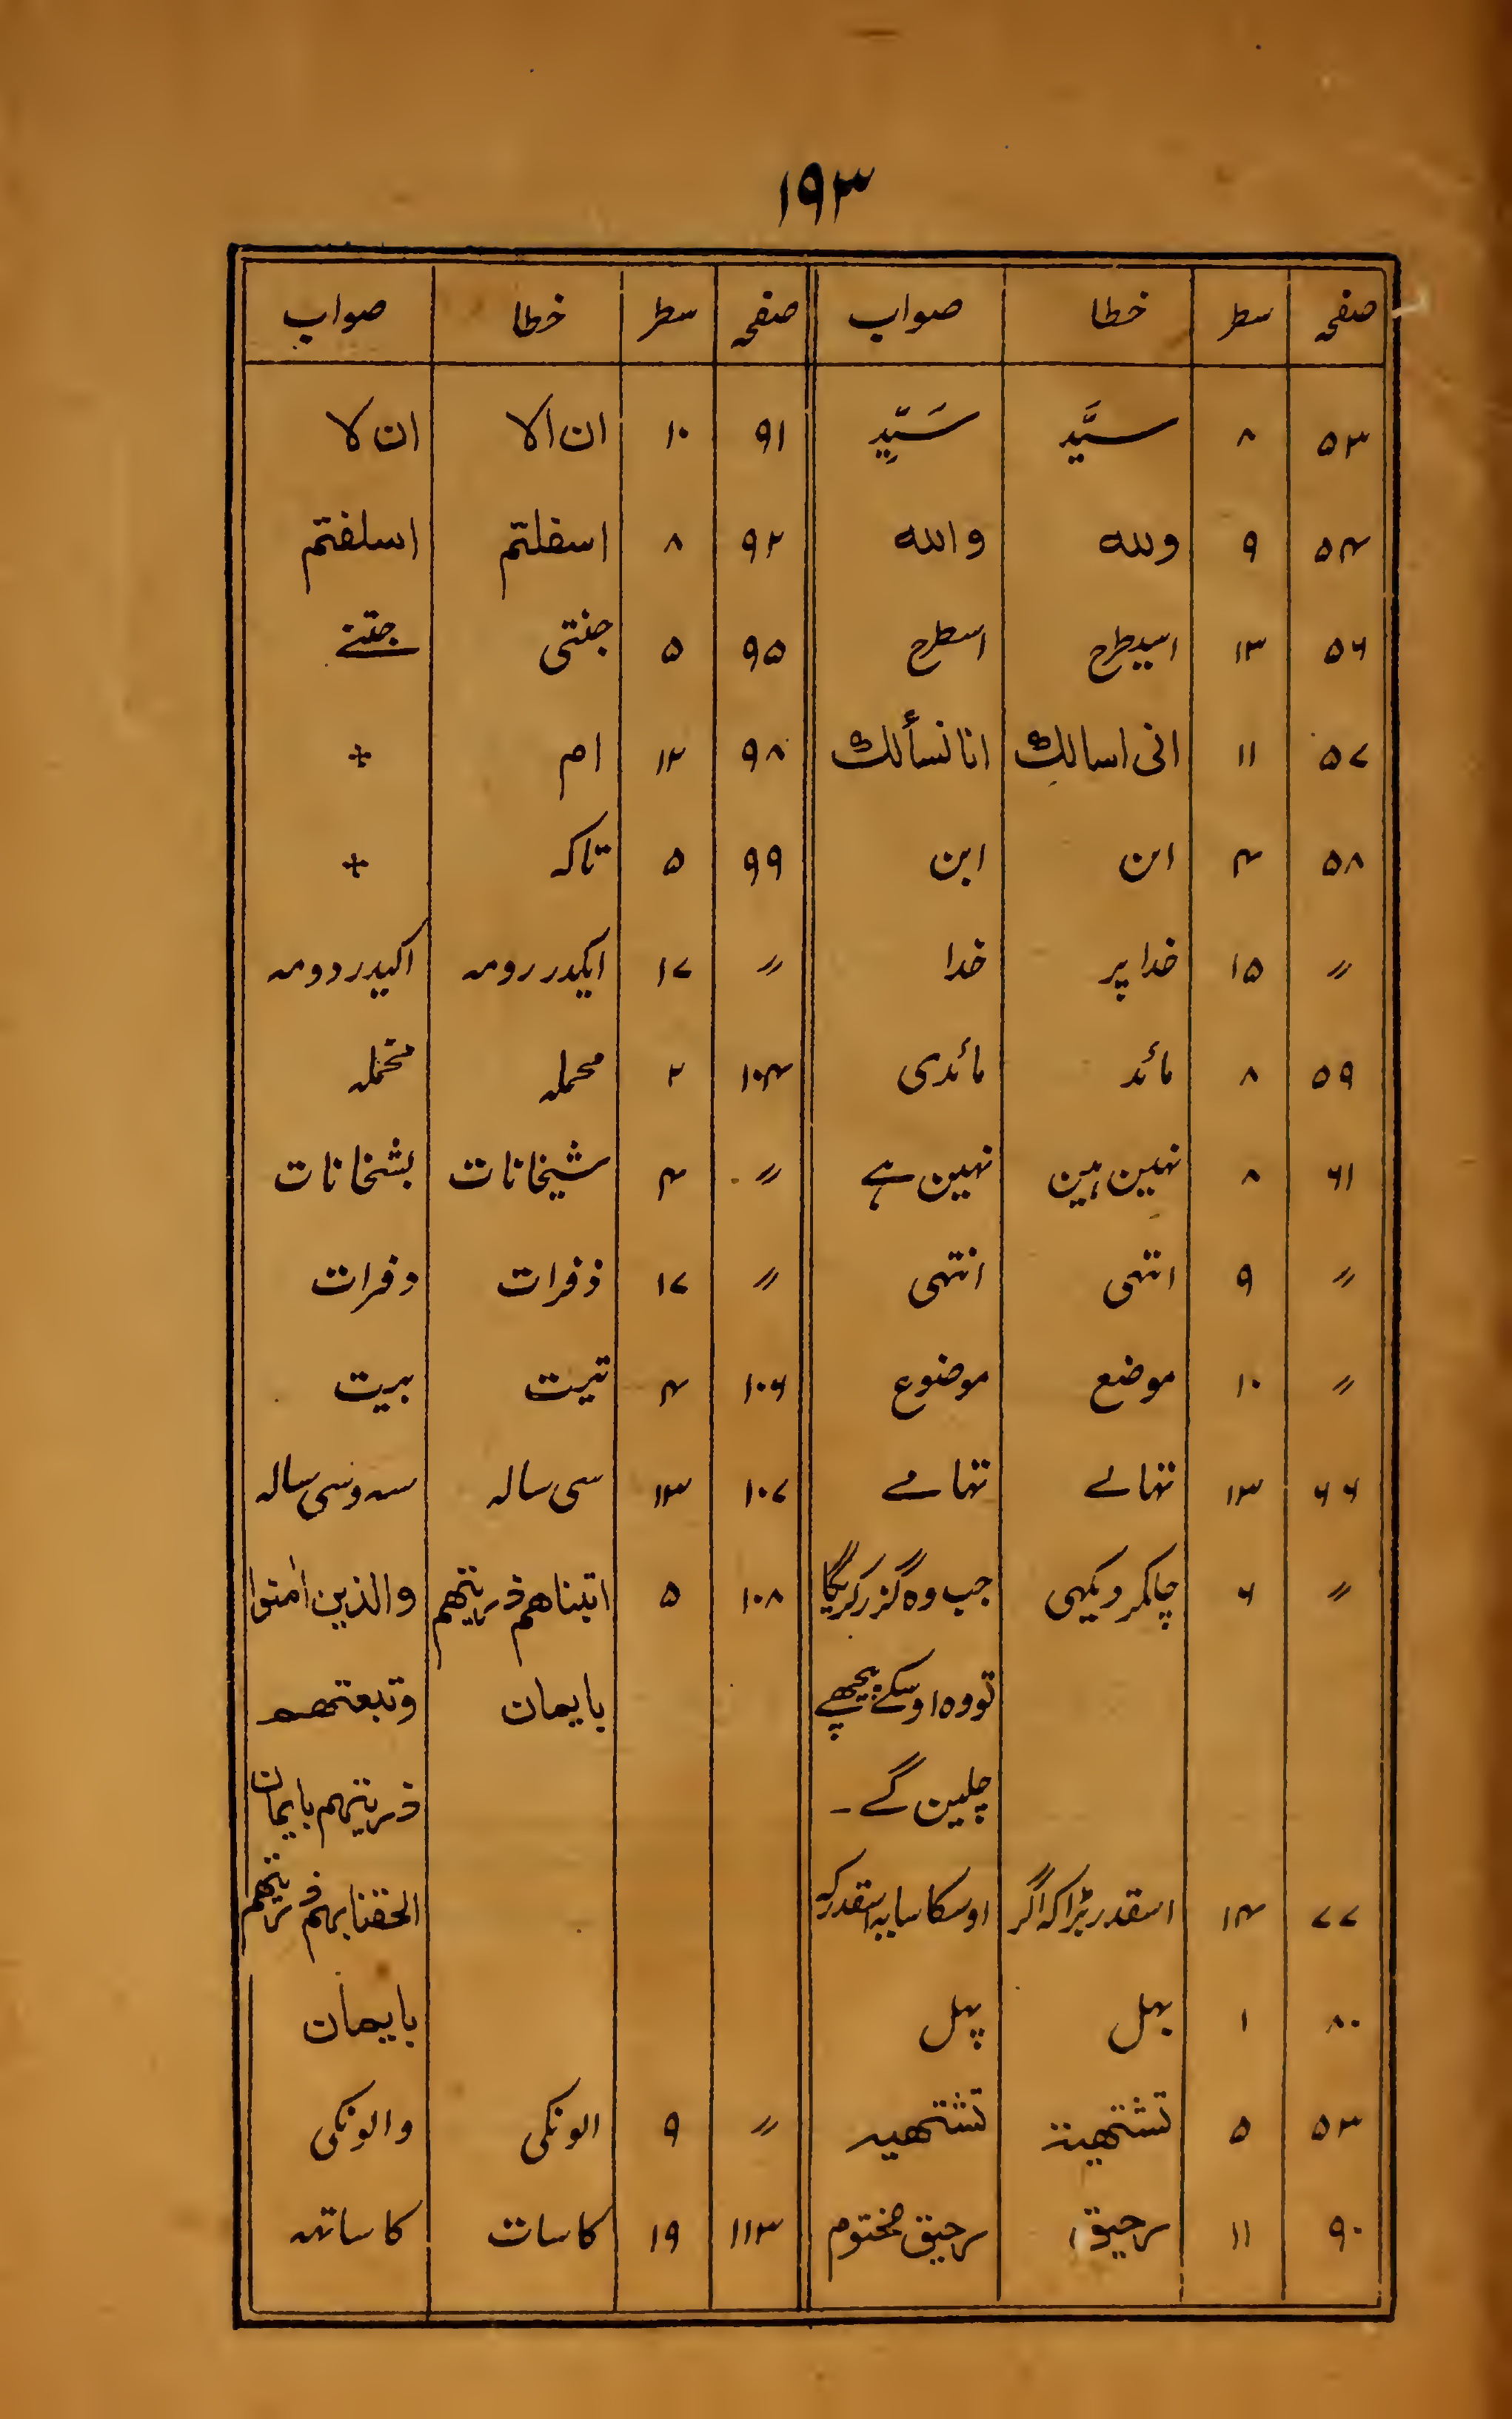 ۱۹۳
صفحہ سطر خطا صواب صفحہ سطر خطا صواب
۵۳ ۸ سیَّد سَیِّد ۹۱ ۱۰ ان الا ان لا
۵۴ ۹ ولله والله ۹۲ ۸ اسفلتم اسلفتم
۵۶ ۱۳ اسیطرح اسطرح ۹۵ ۵ جنتی جتنے
۵۷ ۱۱ انی اسالك انا نسألك ۹۸ ۱۲ ام +
۵۸ ۴ ان ابن ۹۹ ۵ تاکہ +
〃 ۱۵ خدا پر خدا 〃 ۱۷ ایکدر رومہ اکیدر دومہ
۵۹ ۸ مائد مائدی ۱۰۴ ۲ محملہ مخملہ
۶۱ ۸ نہین ہین نہین ہے 〃 ۴ شیخانات بشخانات
〃 ۹ انتہی انتہی 〃 ۱۷ ذفرات دفرات
〃 ۱۰ موضع موضوع ۱۰۶ ۴ تیرت بیرت
۶۶ ۱۳ تنہائے تنہا مے ۱۰۷ ۱۳ سی سالہ سہ و سی سالہ
〃 ۶ چاکر دیکہی جب وہ گزر کریگا ۱۰۸ ۵ اتبناهم ذریتهم والذین اٰمنوا
تو وہ اوسکے پیچھے بایمان وتبعتهم
چلین گے۔ ذریتہم بایمان
۷۷ ۱۴ اسقدر بڑا کہ اگر اوسکا سایہ اسقدر کہ الحقنا بہم ذریتهم
۸۰ ۱ بہل پہل بایمان
۵۳ ۵ تشتهیة تشتهیه 〃 ۹ الونکی والونکی
۹۰ ۱۱ رحیق رحیق مختوم ۱۱۳ ۱۹ کاسات کا ساتہہ